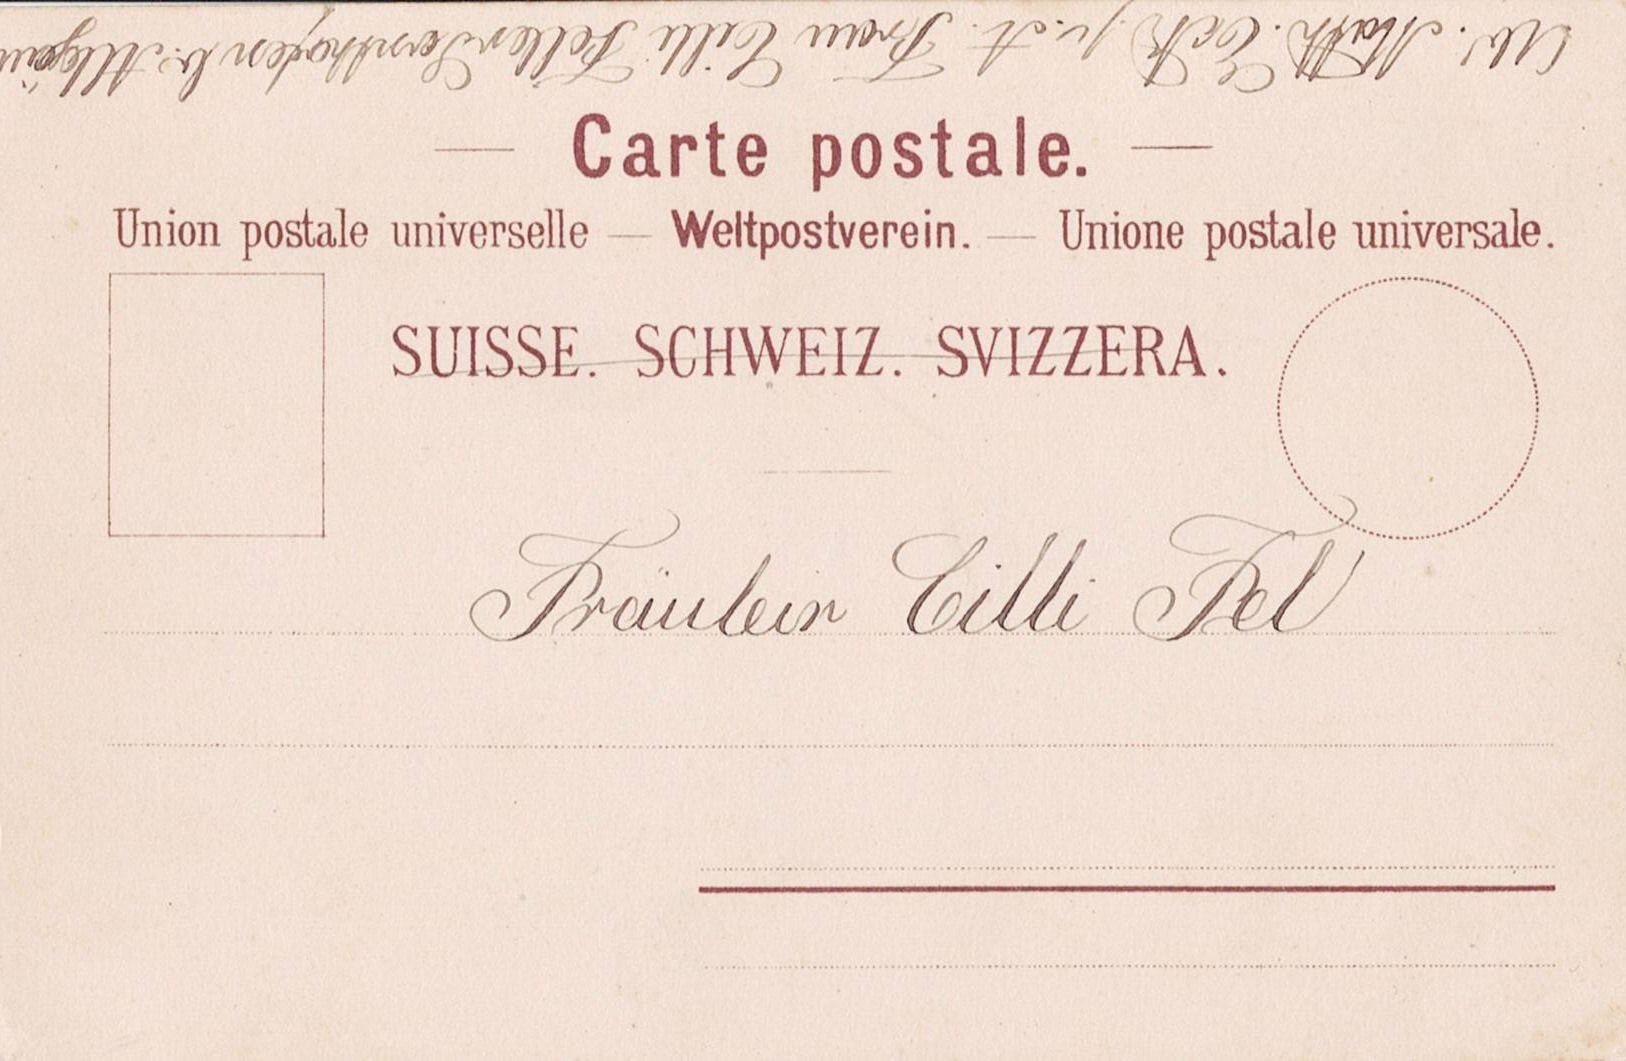 Ulr. Math. Eck p. A. Frau Cilli Feller
Carte postale.
Union postale universelle — Weltpostverein. — Unione postale universale.
SUISSE. SCHWEIZ. SVIZZERA.
Fräulein Cilli Fel